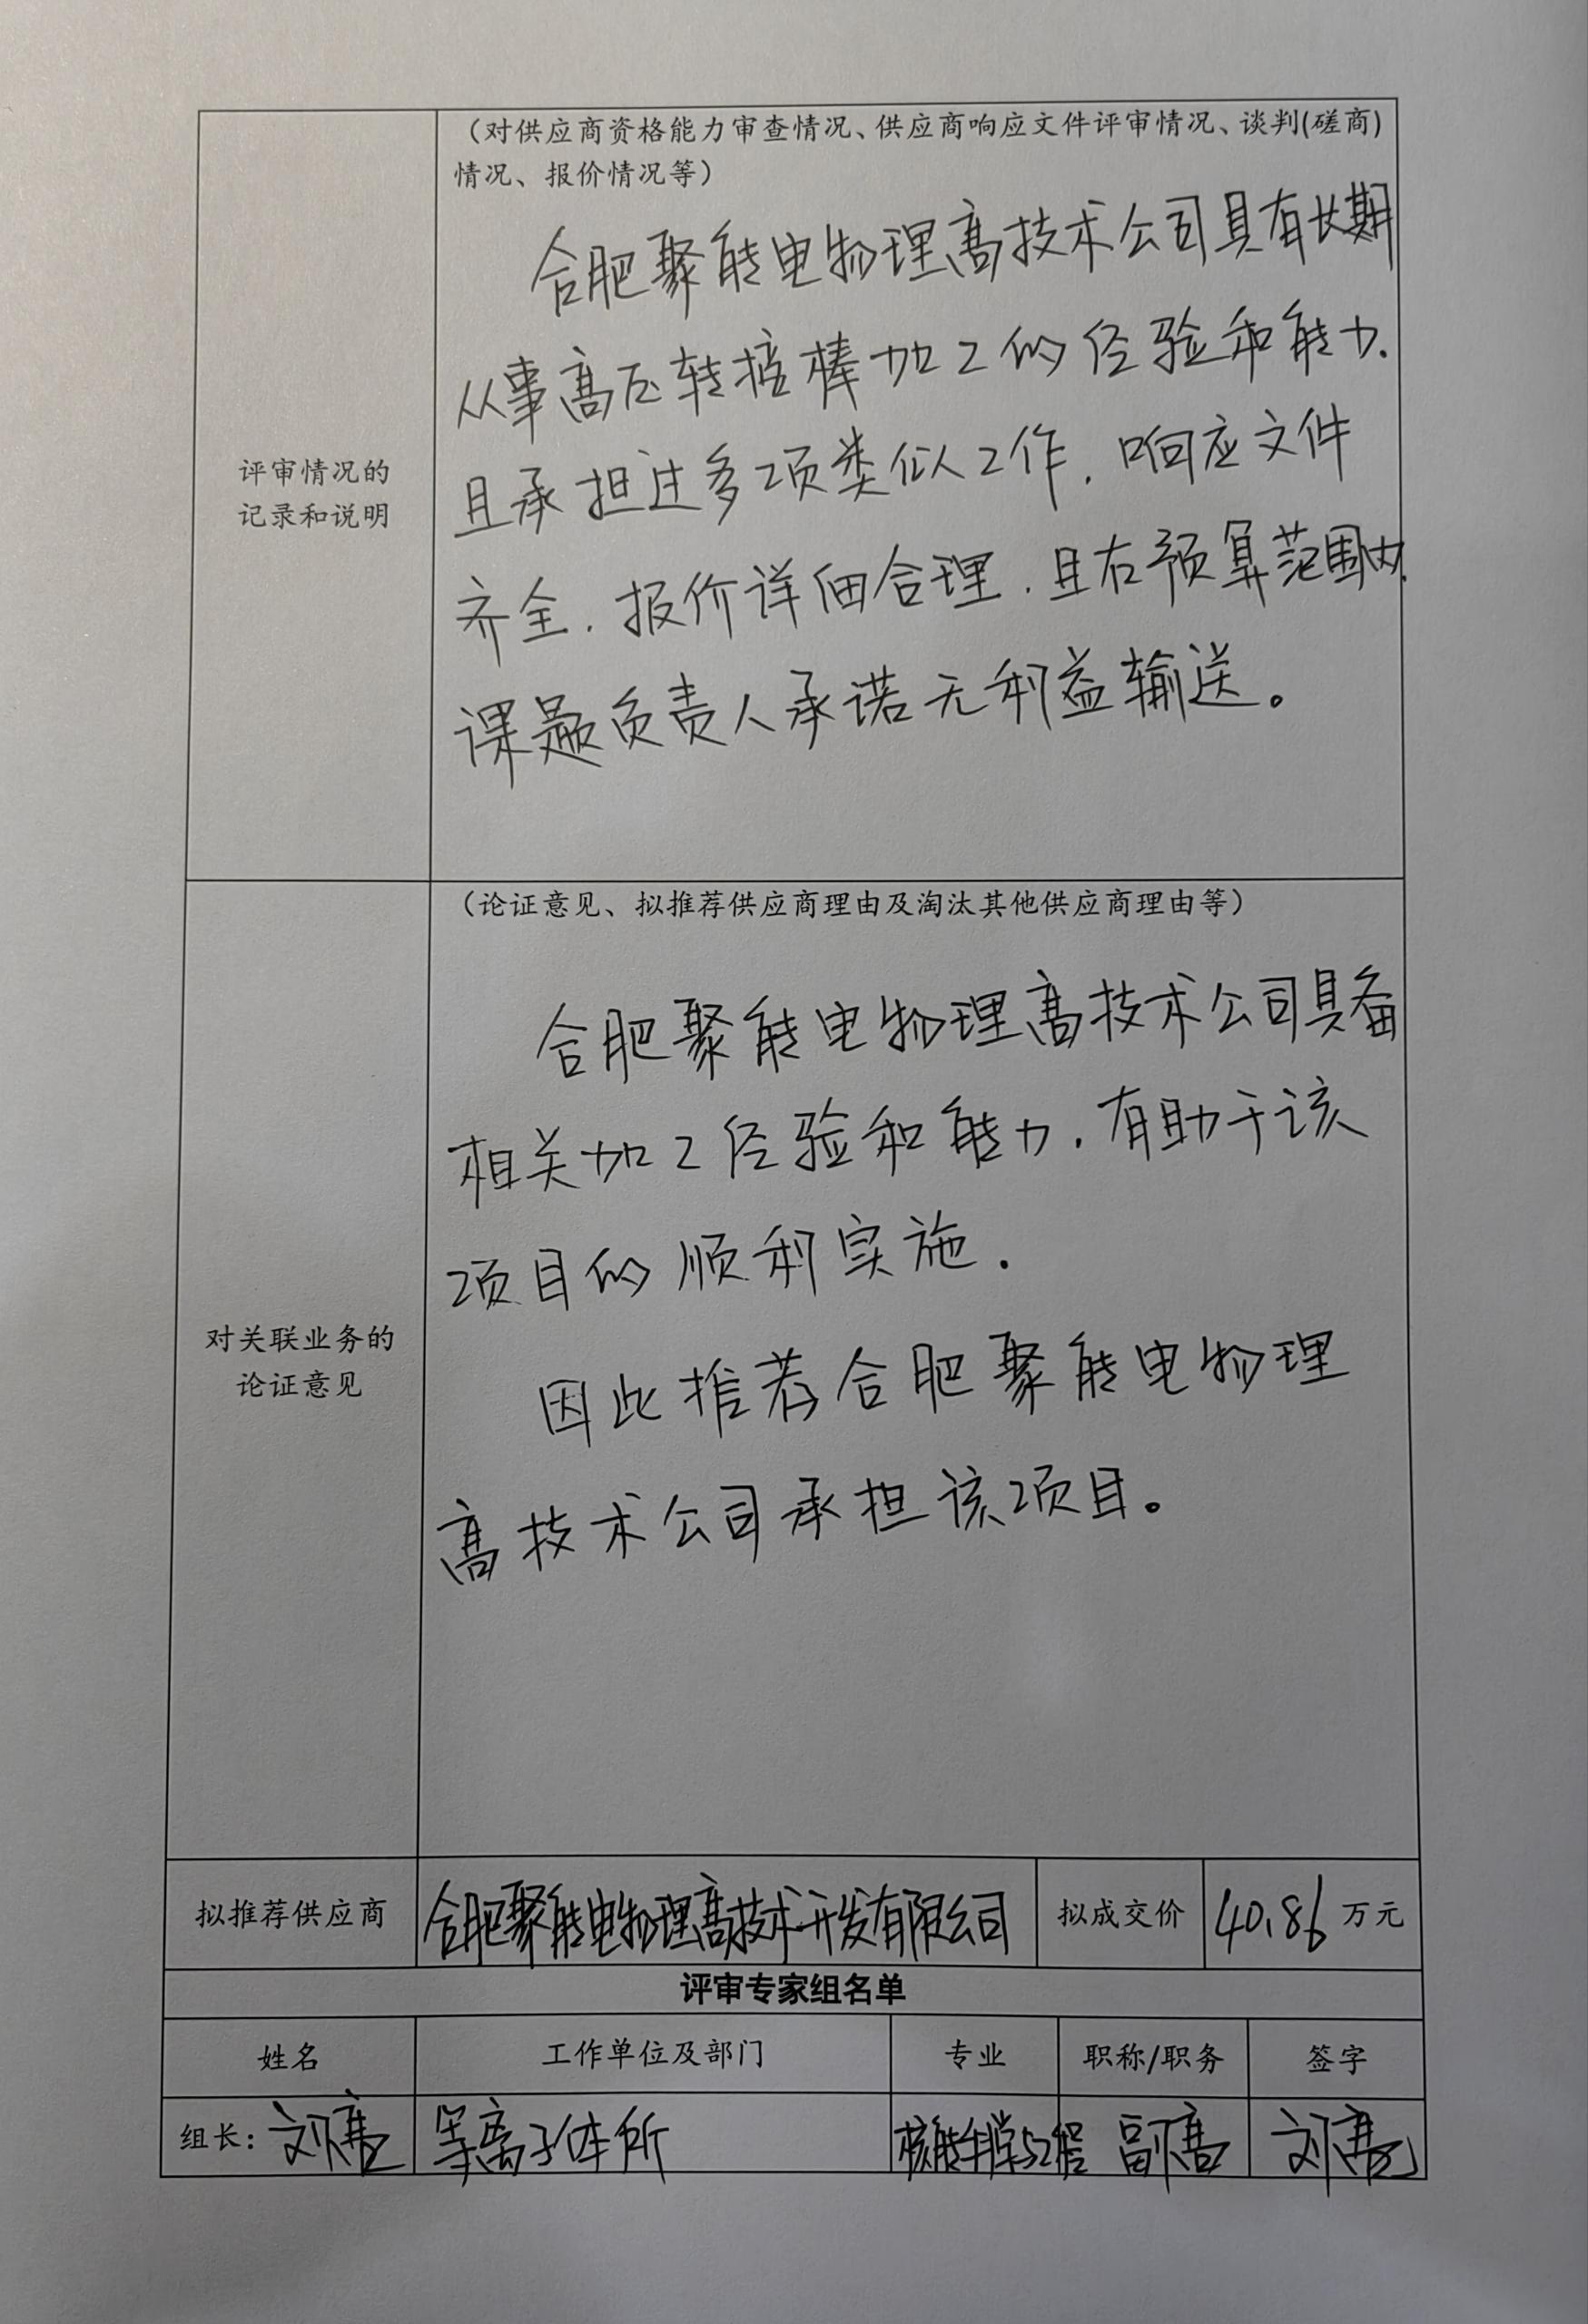 （对供应商资格能力审查情况、供应商响应文件评审情况、谈判(磋商)
情况、报价情况等）
合肥聚能电物理高技术公司具有长期
从事高压转接棒加工的经验和能力.
且承担过多项类似工作.响应文件
齐全.报价详细合理.且在预算范围内.
课题负责人承诺无利益输送。
评审情况的
记录和说明
（论证意见、拟推荐供应商理由及淘汰其他供应商理由等）
合肥聚能电物理高技术公司具备
相关加工经验和能力.有助于该
项目的顺利实施.
因此推荐合肥聚能电物理
高技术公司承担该项目。
对关联业务的
论证意见
拟推荐供应商 合肥聚能电物理高技术开发有限公司 拟成交价 40.86 万元
评审专家组名单
姓名 工作单位及部门 专业 职称/职务 签字
组长： 刘 等离子体所 核能科学与工程 副高 刘